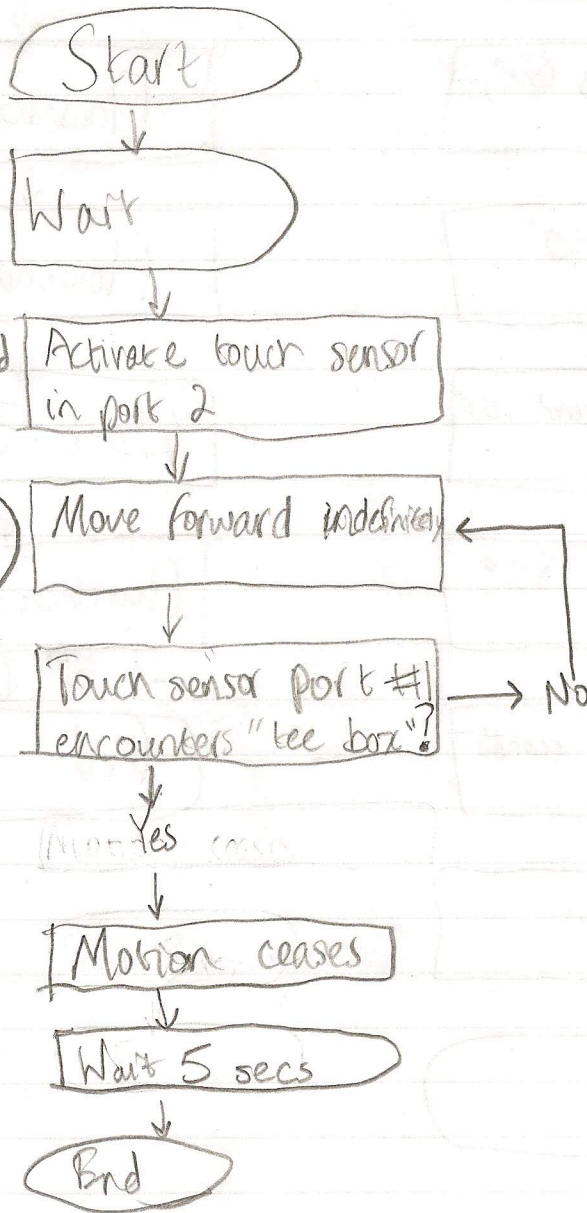 Start
Wait
Activate touch sensor
in port 2
Move forward indefinitely
Touch sensor port #1
encounters "tee box"?
No
Yes
Motion ceases
Wait 5 secs
End